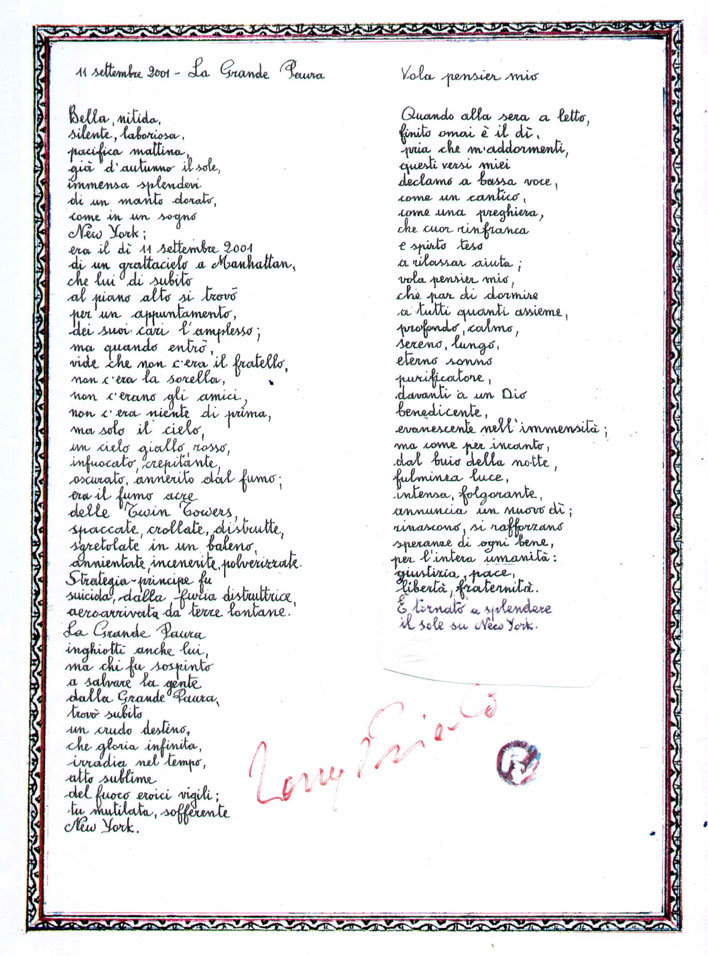 11 settembre 2001 - La Grande Paura
Bella, nitida,
silente, laboriosa,
pacifica mattina,
già d'autunno il sole,
immensa splendevi
di un manto dorato,
come in un sogno
New York;
era il dì 11 settembre 2001
di un grattacielo a Manhattan,
che lui di subito
al piano alto si trovò
per un appuntamento,
dei suoi cari l'amplesso;
ma quando entrò,
vide che non c'era il fratello,
non c'era la sorella,
non c'erano gli amici,
non c'era niente di prima,
ma solo il cielo,
un cielo giallo, rosso,
infuocato, crepitante,
oscurato, annerito dal fumo;
era il fumo acre
delle Twin Towers,
spaccate, crollate, distrutte,
sgretolate in un baleno,
annientate, incenerite, polverizzate.
Strategia-principe fu
suicida, dalla furia distruttrice,
aeroarrivata da terre lontane.
La Grande Paura
inghiottì anche lui,
ma chi fu sospinto
a salvare la gente
dalla Grande Paura,
trovò subito
un crudo destino,
che gloria infinita,
irradia nel tempo,
atto sublime
del fuoco eroici vigili;
tu mutilata, sofferente
New York.
Vola pensier mio
Quando alla sera a letto,
finito omai è il dì,
pria che m'addormenti,
questi versi miei
declamo a bassa voce,
come un cantico,
come una preghiera,
che cuor rinfranca
e spirto teso
a rilassar aiuta;
vola pensier mio,
chè par di dormire
a tutti quanti assieme,
profondo, calmo,
sereno, lungo,
eterno sonno
purificatore,
davanti a un Dio
benedicente,
evanescente nell'immensità;
ma come per incanto,
dal buio della notte,
fulminea luce,
intensa, folgorante,
annuncia un nuovo dì;
rinascono, si rafforzano
speranze di ogni bene,
per l'intera umanità:
giustizia, pace,
libertà, fraternità.
È tornato a splendere
il sole su New York.